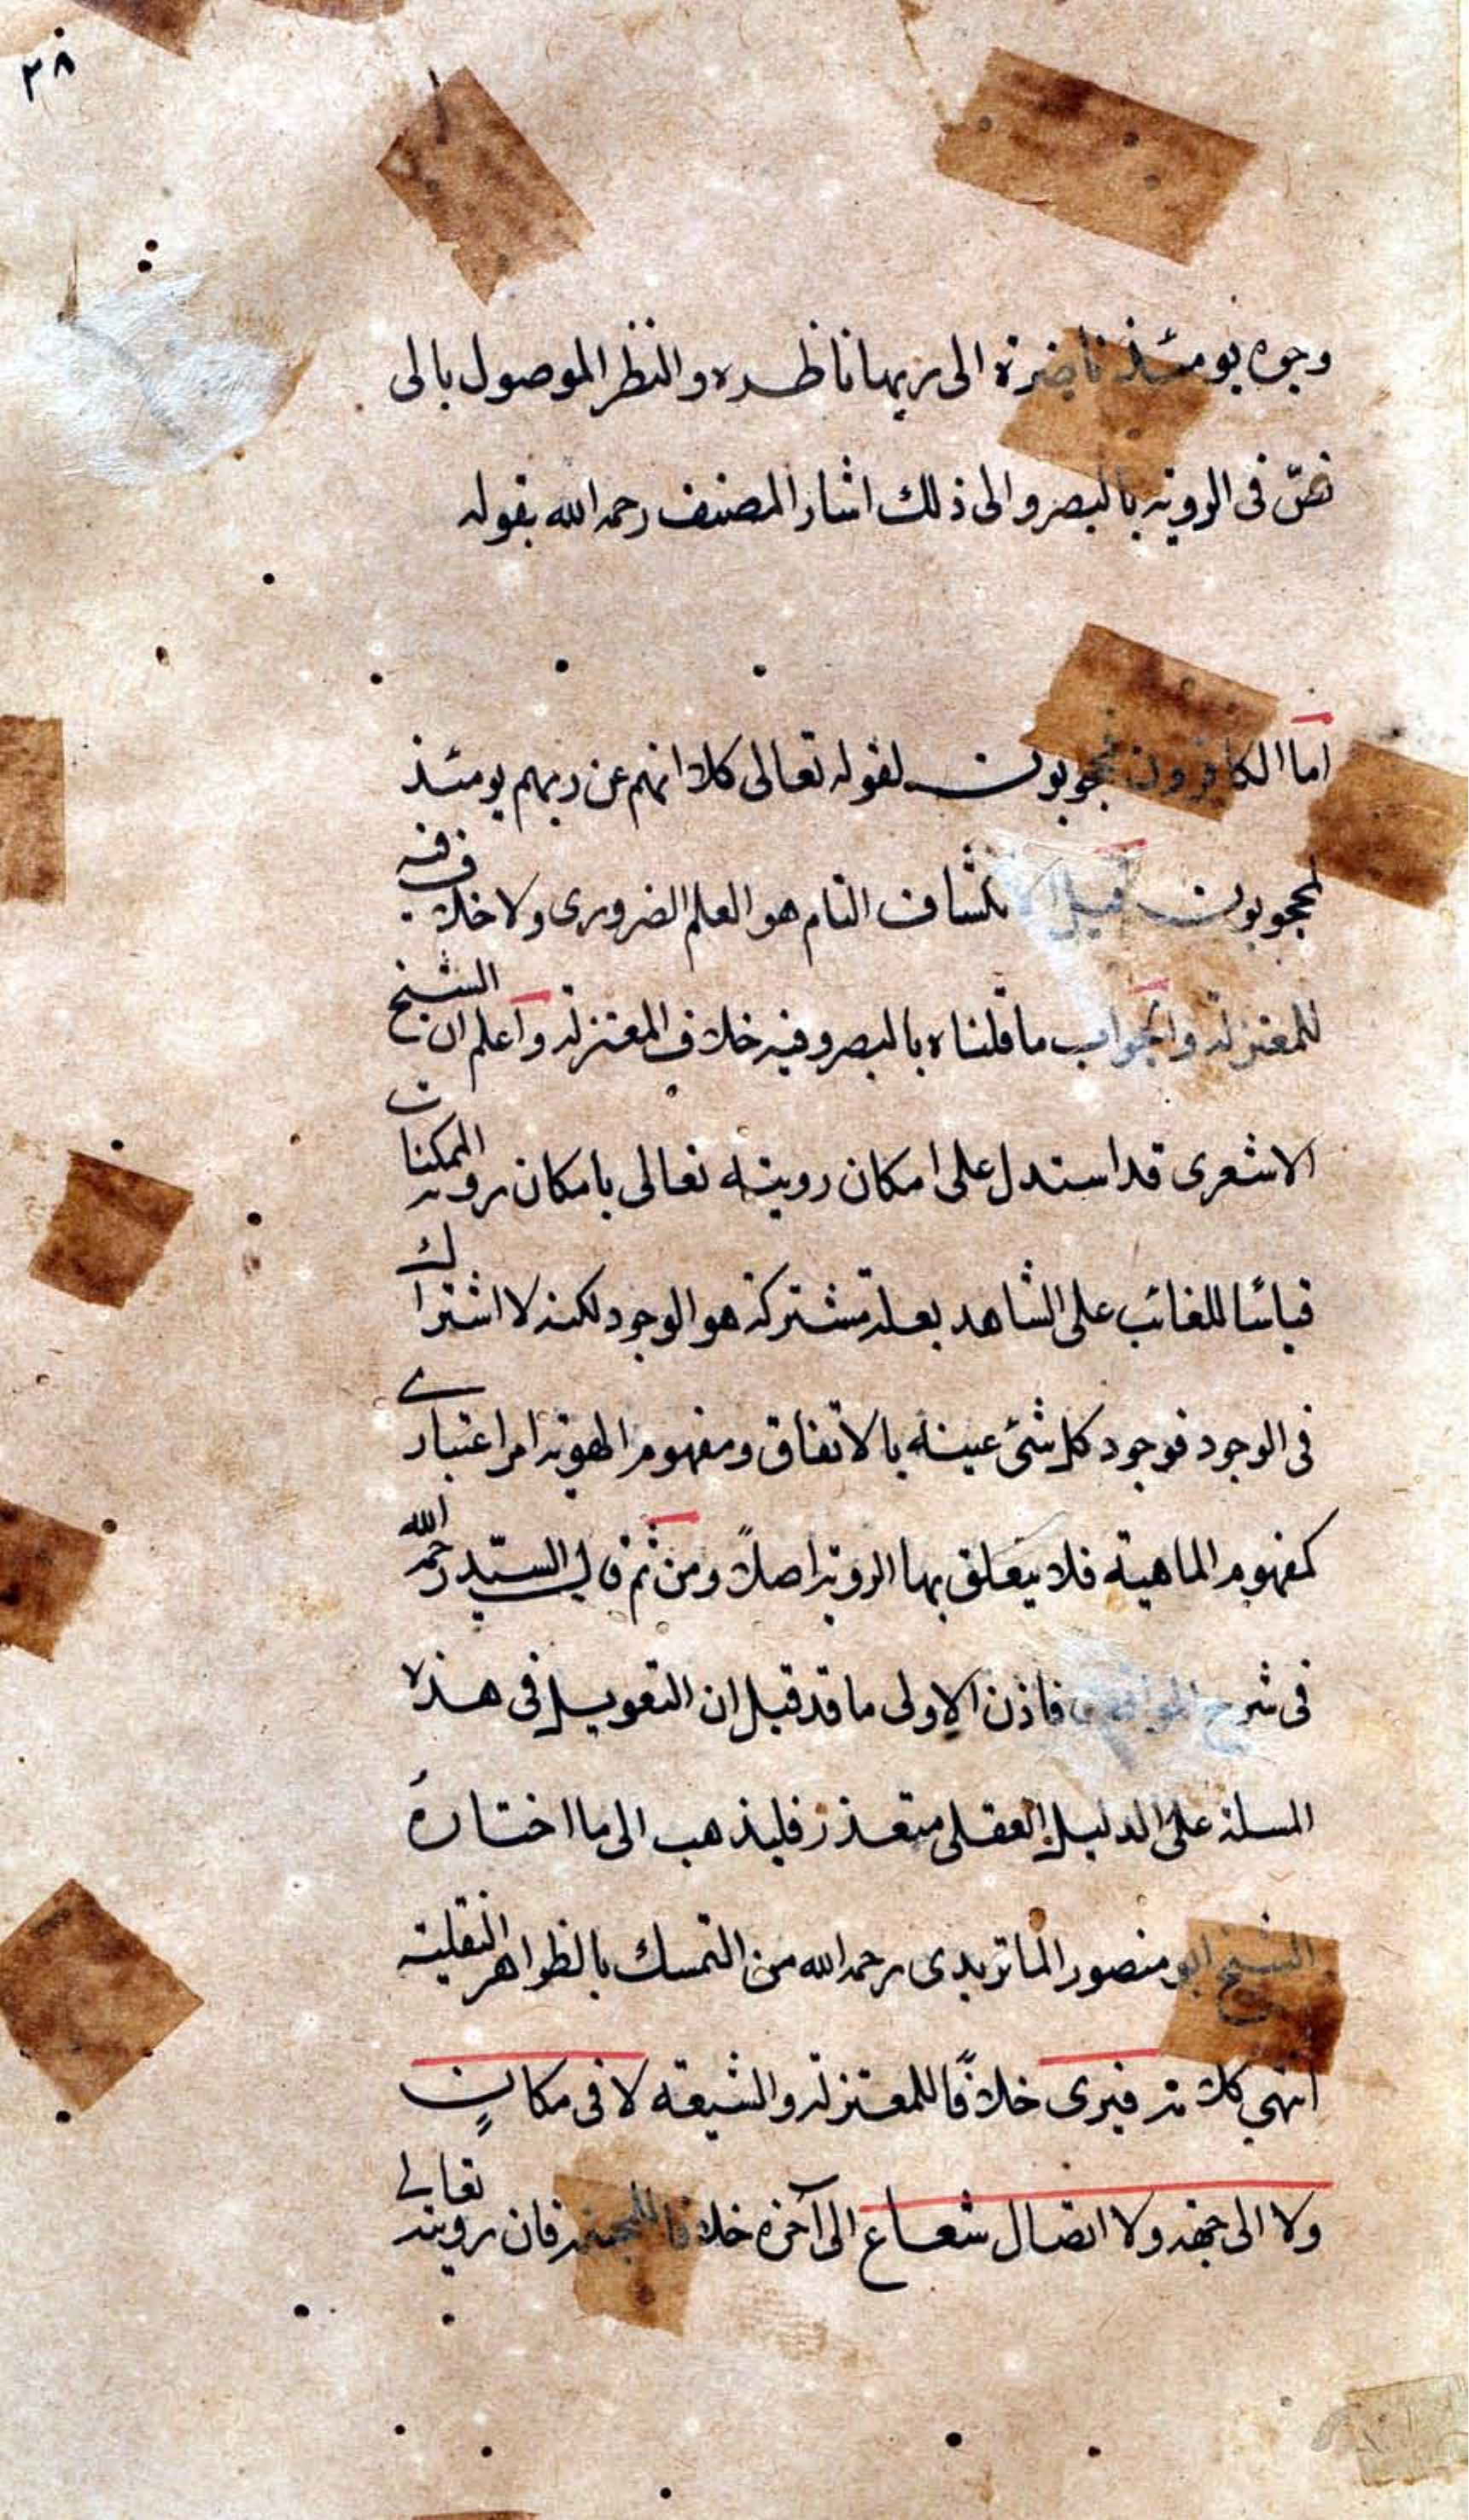 ٣٨
وجوه يومئذ ناضرة الى ربها ناظره والنظر الموصول بالى
نصّ فى الروية بالبصر والى ذلك اشار المصنف رحمه الله بقوله
اما الكافرون فمحجوبون لقوله تعالى كلا انهم عن ربهم يومئذ
لمحجوبون قيل الانكشاف التام هو العلم الضرورى ولا خلاف فيه
للمعتزلة والجواب ما قلناه بالبصر وفيه خلاف المعتزلة واعلم ان الشيخ
الاشعرى قد استدل على امكان رويته تعالى بامكان روية الممكنات
قياسًا للغائب على الشاهد بعلة مشتركة هو الوجود لكنه لا اشتراك
فى الوجود فوجود كل شئ عينه بالاتفاق ومفهوم الهوية امر اعتبارى
كمفهوم الماهية فلا يتعلق بها الروية اصلاً ومن ثم قال السيّد رحمه الله
فى شرح المواقف فاذن الاولى ما قد قيل ان التعويل فى هذه
المسلة على الدليل العقلى متعذر فليذهب الى ما اختاره
الشيخ ابو منصور الماتريدى رحمه الله من التمسك بالظواهر النقلية
انتهى كلامه فيرى خلافًا للمعتزلة والشيعة لا فى مكانٍ
ولا الى جهة ولا اتصال شعاع الى آخره خلافا للمجسمة فان رويته تعالى